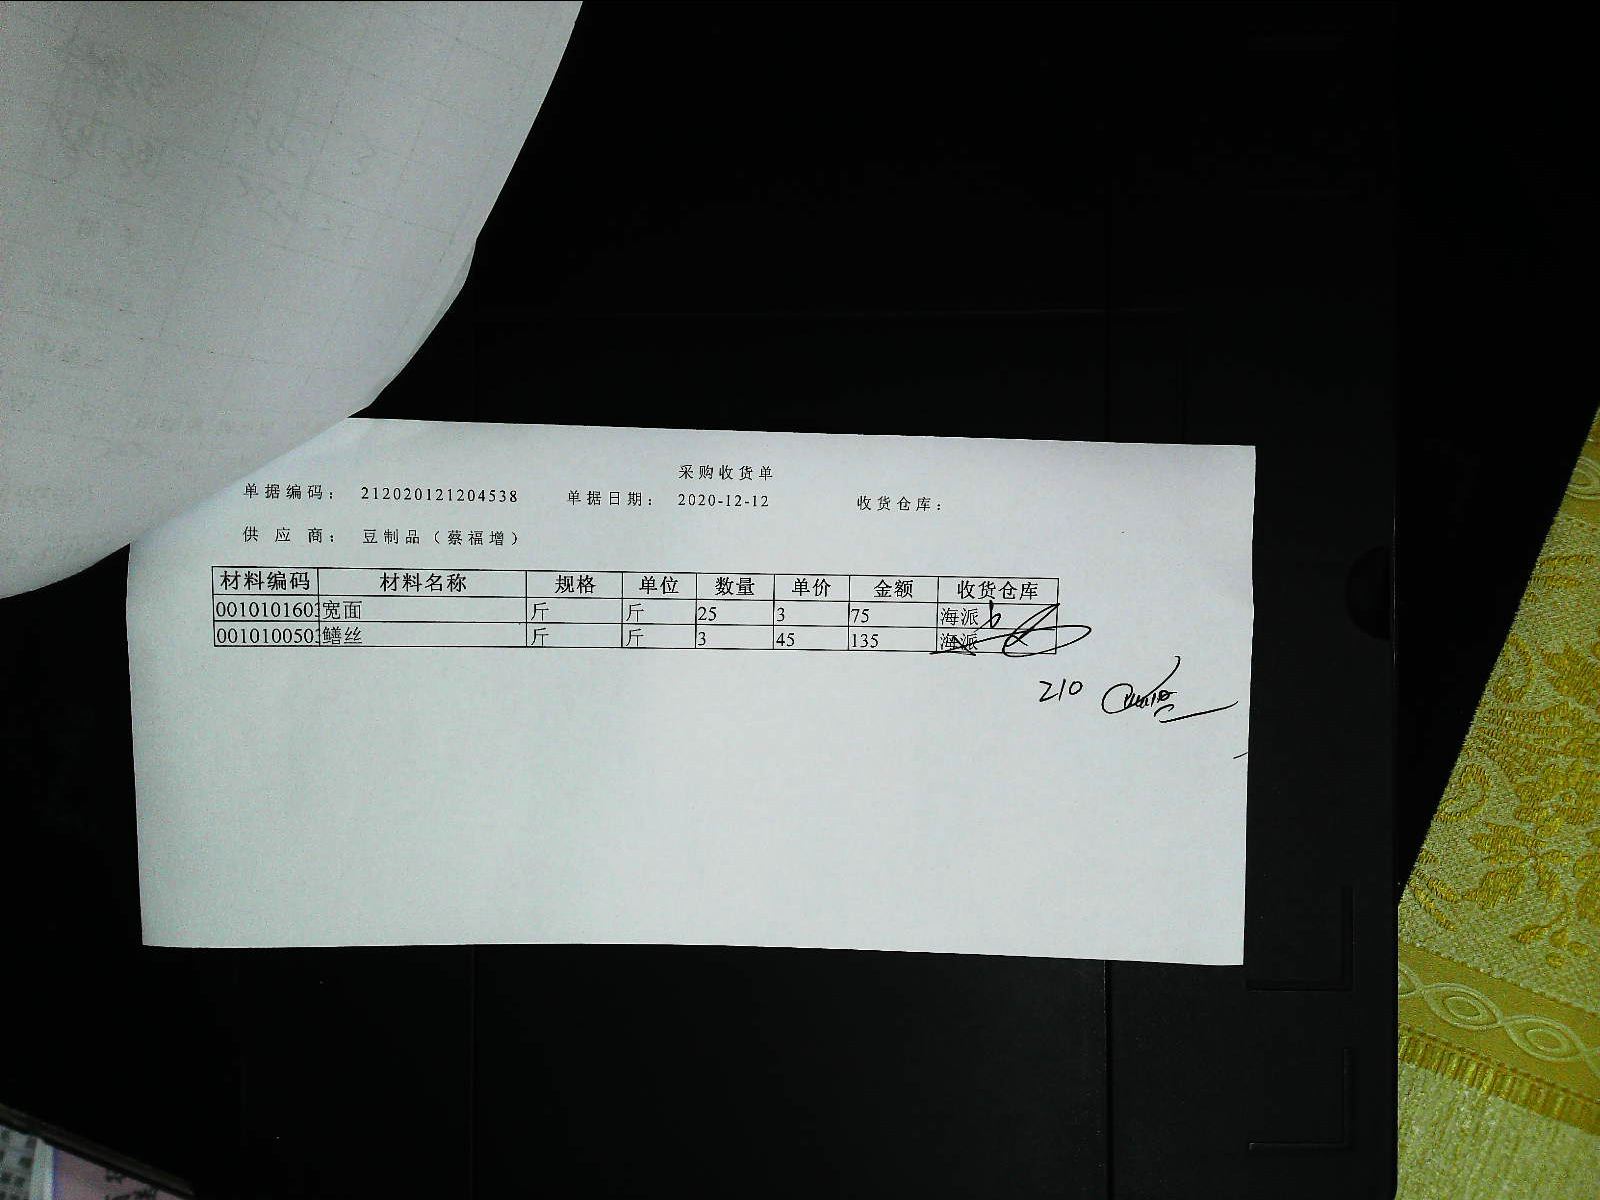 采购收货单
单据编码： 212020121204538 单据日期： 2020-12-12 收货仓库：
供应商： 豆制品（蔡福增）
材料编码 材料名称 规格 单位 数量 单价 金额 收货仓库
0010101603 宽面 斤 斤 25 3 75 海派
0010100503 鳝丝 斤 斤 3 45 135 海派
210